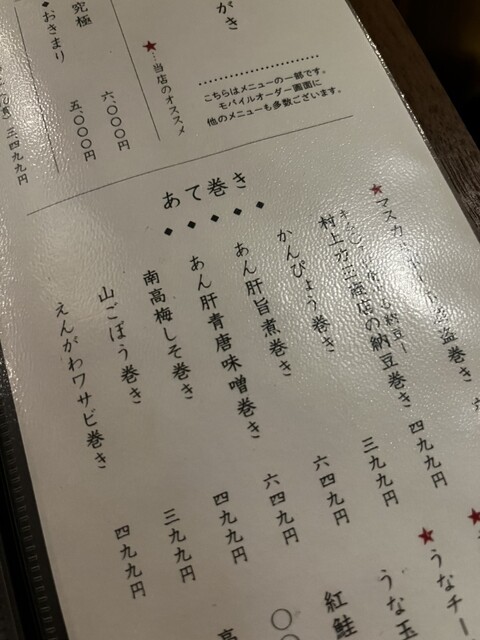 がき
★…当店のオススメ
こちらはメニューの一部です。
モバイルオーダー画面に
他のメニューも多数ございます。
究極
六〇〇〇円
◆おきまり
五〇〇〇円
三、四九九円
あて巻き
◆◆◆◆◆
巻き
の納豆巻き
四九九円
かんぴょう巻き
三九九円
あん肝旨煮巻き
六四九円
あん肝青唐味噌巻き
六四九円
南高梅しそ巻き
四九九円
山ごぼう巻き
三九九円
えんがわワサビ巻き
四九九円
★
★うなチー
うな玉
紅鮭